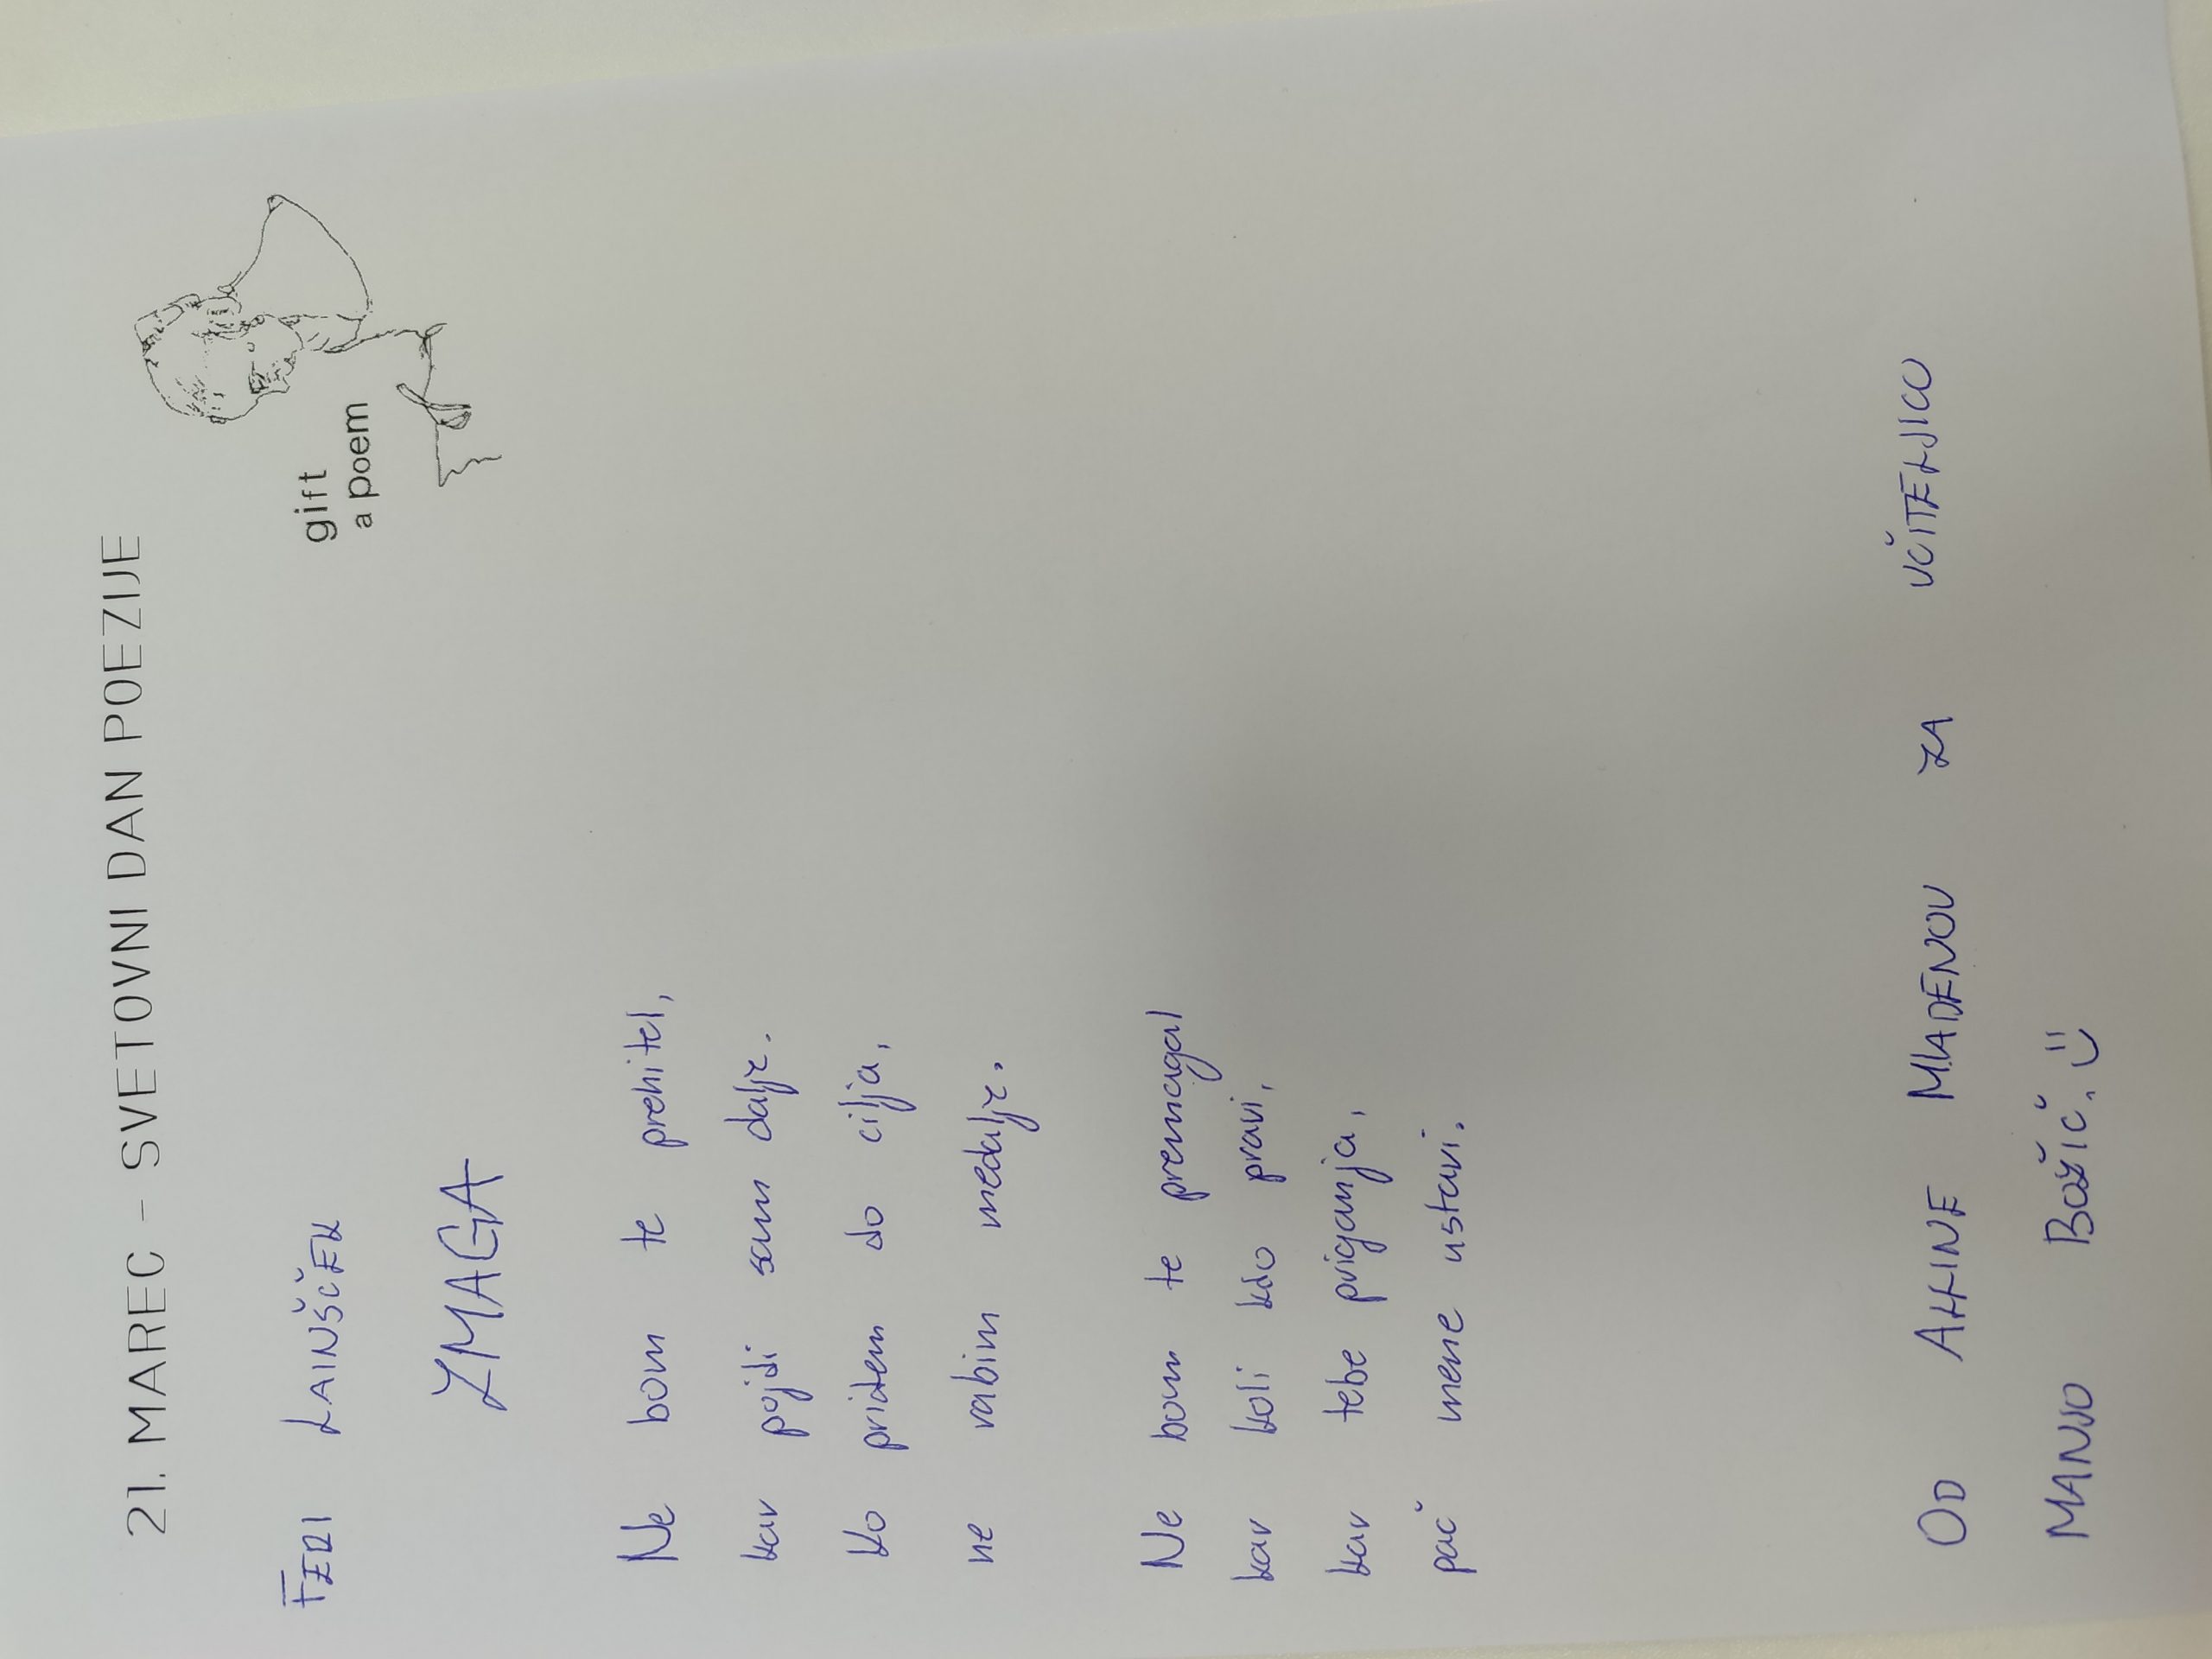 21. MAREC - SVETOVNI DAN POEZIJE
gift
a poem
FERI LAINŠČEK
ZMAGA
Ne bom te prehitel,
kar pojdi sam dalje.
Ko pridem do cilja,
ne rabim medalje.
Ne bom te premagal
kar koli kdo pravi,
kar tebe priganja,
pač mene ustavi.
OD ALINE MLADENOV ZA UČITELJICO
MANJO BOŽIČ. :)